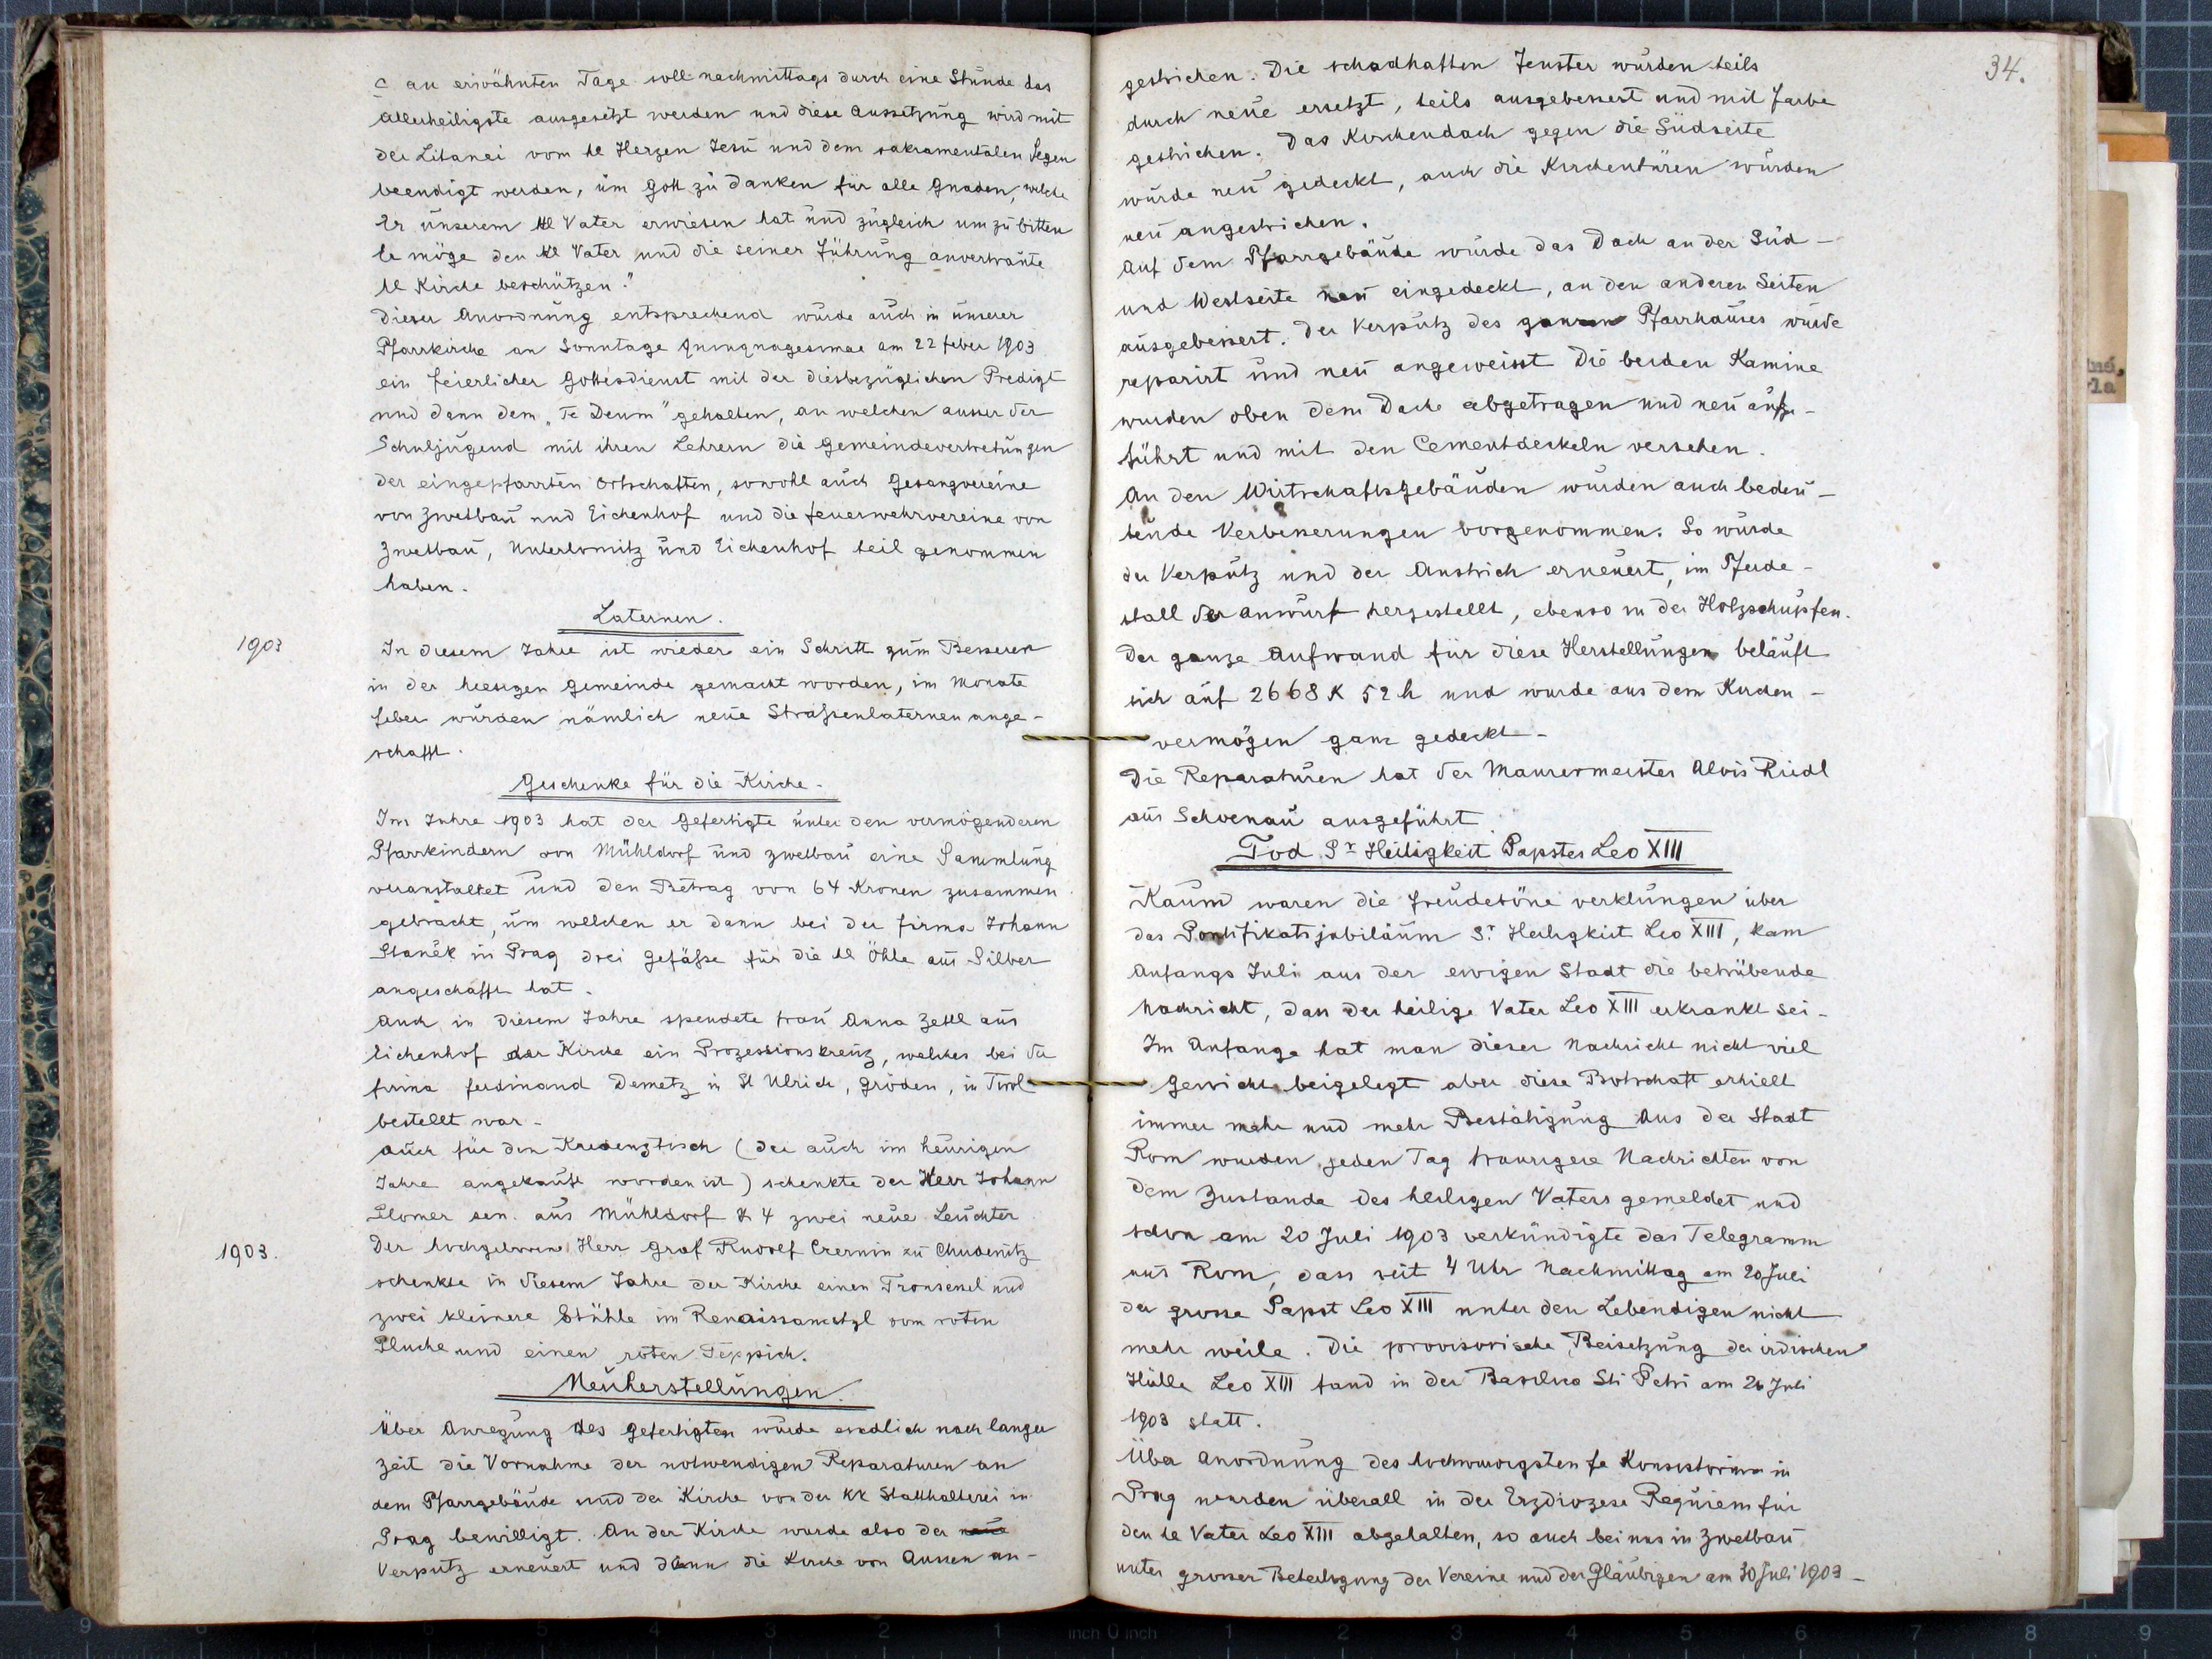 c an erwähnten Tage soll nachmittags durch eine Stunde das
Allerheiligste ausgesetzt werden und diese Aussetzung wird mit
der Litanei vom hl Herzen Jesu und dem sakramentalen Segen
beendigt werden, um Gott zu danken für alle Gnaden, welche
Er unserem Hl Vater erwiesen hat und zugleich um zu bitten
Er möge den Hl Vater und die seiner Führung anvertraute
hl Kirche beschützen."
Dieser Anordnung entsprechend wurde auch in unserer
Pfarrkirche an Sonntage Quinquagesimae am 22 Feber 1903
ein feierlicher Gottesdienst mit der diesbezüglichen Predigt
und dann dem „Te Deum" gehalten, an welchen ausser der
Schuljugend mit ihren Lehrern die Gemeindevertretungen
der eingepfarrten Ortschaften, sowohl auch Gesangvereine
von Zwetbau und Eichenhof und die Feuerwehrvereine von
Zwetbau, Unterlomitz und Eichenhof teil genommen
haben.
Laternen.
1903
In diesem Jahre ist wieder ein Schritt zum Besseren
in der hiesigen Gemeinde gemacht worden, im Monate
Feber wurden nämlich neue Straßenlaternen ange-
schafft.
Geschenke für die Kirche.
Im Jahre 1903 hat der Gefertigte unter den vermögenderen
Pfarrkindern von Mühldorf und Zwetbau eine Sammlung
veranstaltet und den Betrag von 64 Kronen zusammen
gebracht, um welchen er dann bei der Firma Johann
Staněk in Prag drei Gefäße für die hl Öhle aus Silber
angeschafft hat.
Auch in diesem Jahre spendete Frau Anna Zettl aus
Eichenhof der Kirche ein Prozessionskreuz, welches bei der
Firma Ferdinand Demetz in St Ulrich, Gröden, in Tirol
bestellt war.
Auch für den Kredenztisch (der auch im heurigen
Jahre angekauft worden ist) schenkte der Herr Johann
Plomer sen. aus Mühldorf 4 zwei neue Leuchter
1903.
Der hochgeborene Herr Graf Rudolf Czernin zu Chudenitz
schenkte in diesem Jahre der Kirche einen Tronsessel und
zwei kleinere Stühle im Renaissancetyl vom roten
Pluche und einen roten Teppich.
Neuherstellungen.
Über Anregung des Gefertigten wurde endlich nach langer
Zeit die Vornahme der notwendigen Reparaturen an
dem Pfarrgebäude und der Kirche von der KK Statthalterei in
Prag bewilligt. An der Kirche wurde also der neue
Verputz erneuert und dann die Kirche von Aussen an-
34.
gestrichen. Die schadhaften Fenster wurden teils
durch neue ersetzt, teils ausgebessert und mit Farbe
gestrichen. Das Kirchendach gegen die Südseite
wurde neu gedeckt, auch die Kirchentüren wurden
neu angestrichen.
Auf dem Pfarrgebäude wurde das Dach an der Süd-
und Westseite neu eingedeckt, an den anderen Seiten
ausgebessert. Der Verputz des ganzen Pfarrhauses wurde
reparirt und neu angeweisst Die beiden Kamine
wurden oben dem Dache abgetragen und neu aufge-
führt und mit den Cementdeckeln versehen.
An den Wirtschaftsgebäuden wurden auch bedeu-
tende Verbesserungen vorgenommen. So wurde
der Verputz und der Anstrich erneuert, im Pferde-
stall der Anwurf hergestellt, ebenso in der Holzschupfen.
Der ganze Aufwand für diese Herstellungen beläuft
sich auf 2668 K 52 h und wurde aus dem Kirchen-
vermögen ganz gedeckt.
Die Reparaturen hat der Maurermeister Alois Riedl
aus Schoenau ausgeführt
Tod Sr Heiligkeit Papstes Leo XIII
Kaum waren die Freudetöne verklungen über
das Pontifikatsjubiläum Sr Heiligkeit Leo XIII, kam
Anfangs Juli aus der ewigen Stadt die betrübende
Nachricht, dass der heilige Vater Leo XIII erkrankt sei.
Im Anfange hat man dieser Nachricht nicht viel
Gewicht beigelegt aber diese Botschaft erhielt
immer mehr und mehr Bestätigung Aus der Stadt
Rom wurden jeden Tag traurigere Nachrichten von
dem Zustande des heiligen Vaters gemeldet und
schon am 20 Juli 1903 verkündigte das Telegramm
aus Rom, dass seit 4 Uhr Nachmittag am 20 Juli
der grosse Papst Leo XIII unter den Lebendigen nicht
mehr weile. Die provisorische Beisetzung der irdischen
Hülle Leo XIII fand in der Basilica Sti Petri am 26 Juli
1903 statt.
Über Anordnung des hochwürdigsten fe Konsistorium in
Prag wurden überall in der Erzdiozese Requiem für
den hl Vater Leo XIII abgehalten, so auch bei uns in Zwetbau
unter grosser Beteiligung der Vereine und der Gläubigen am 30 Juli 1903 -